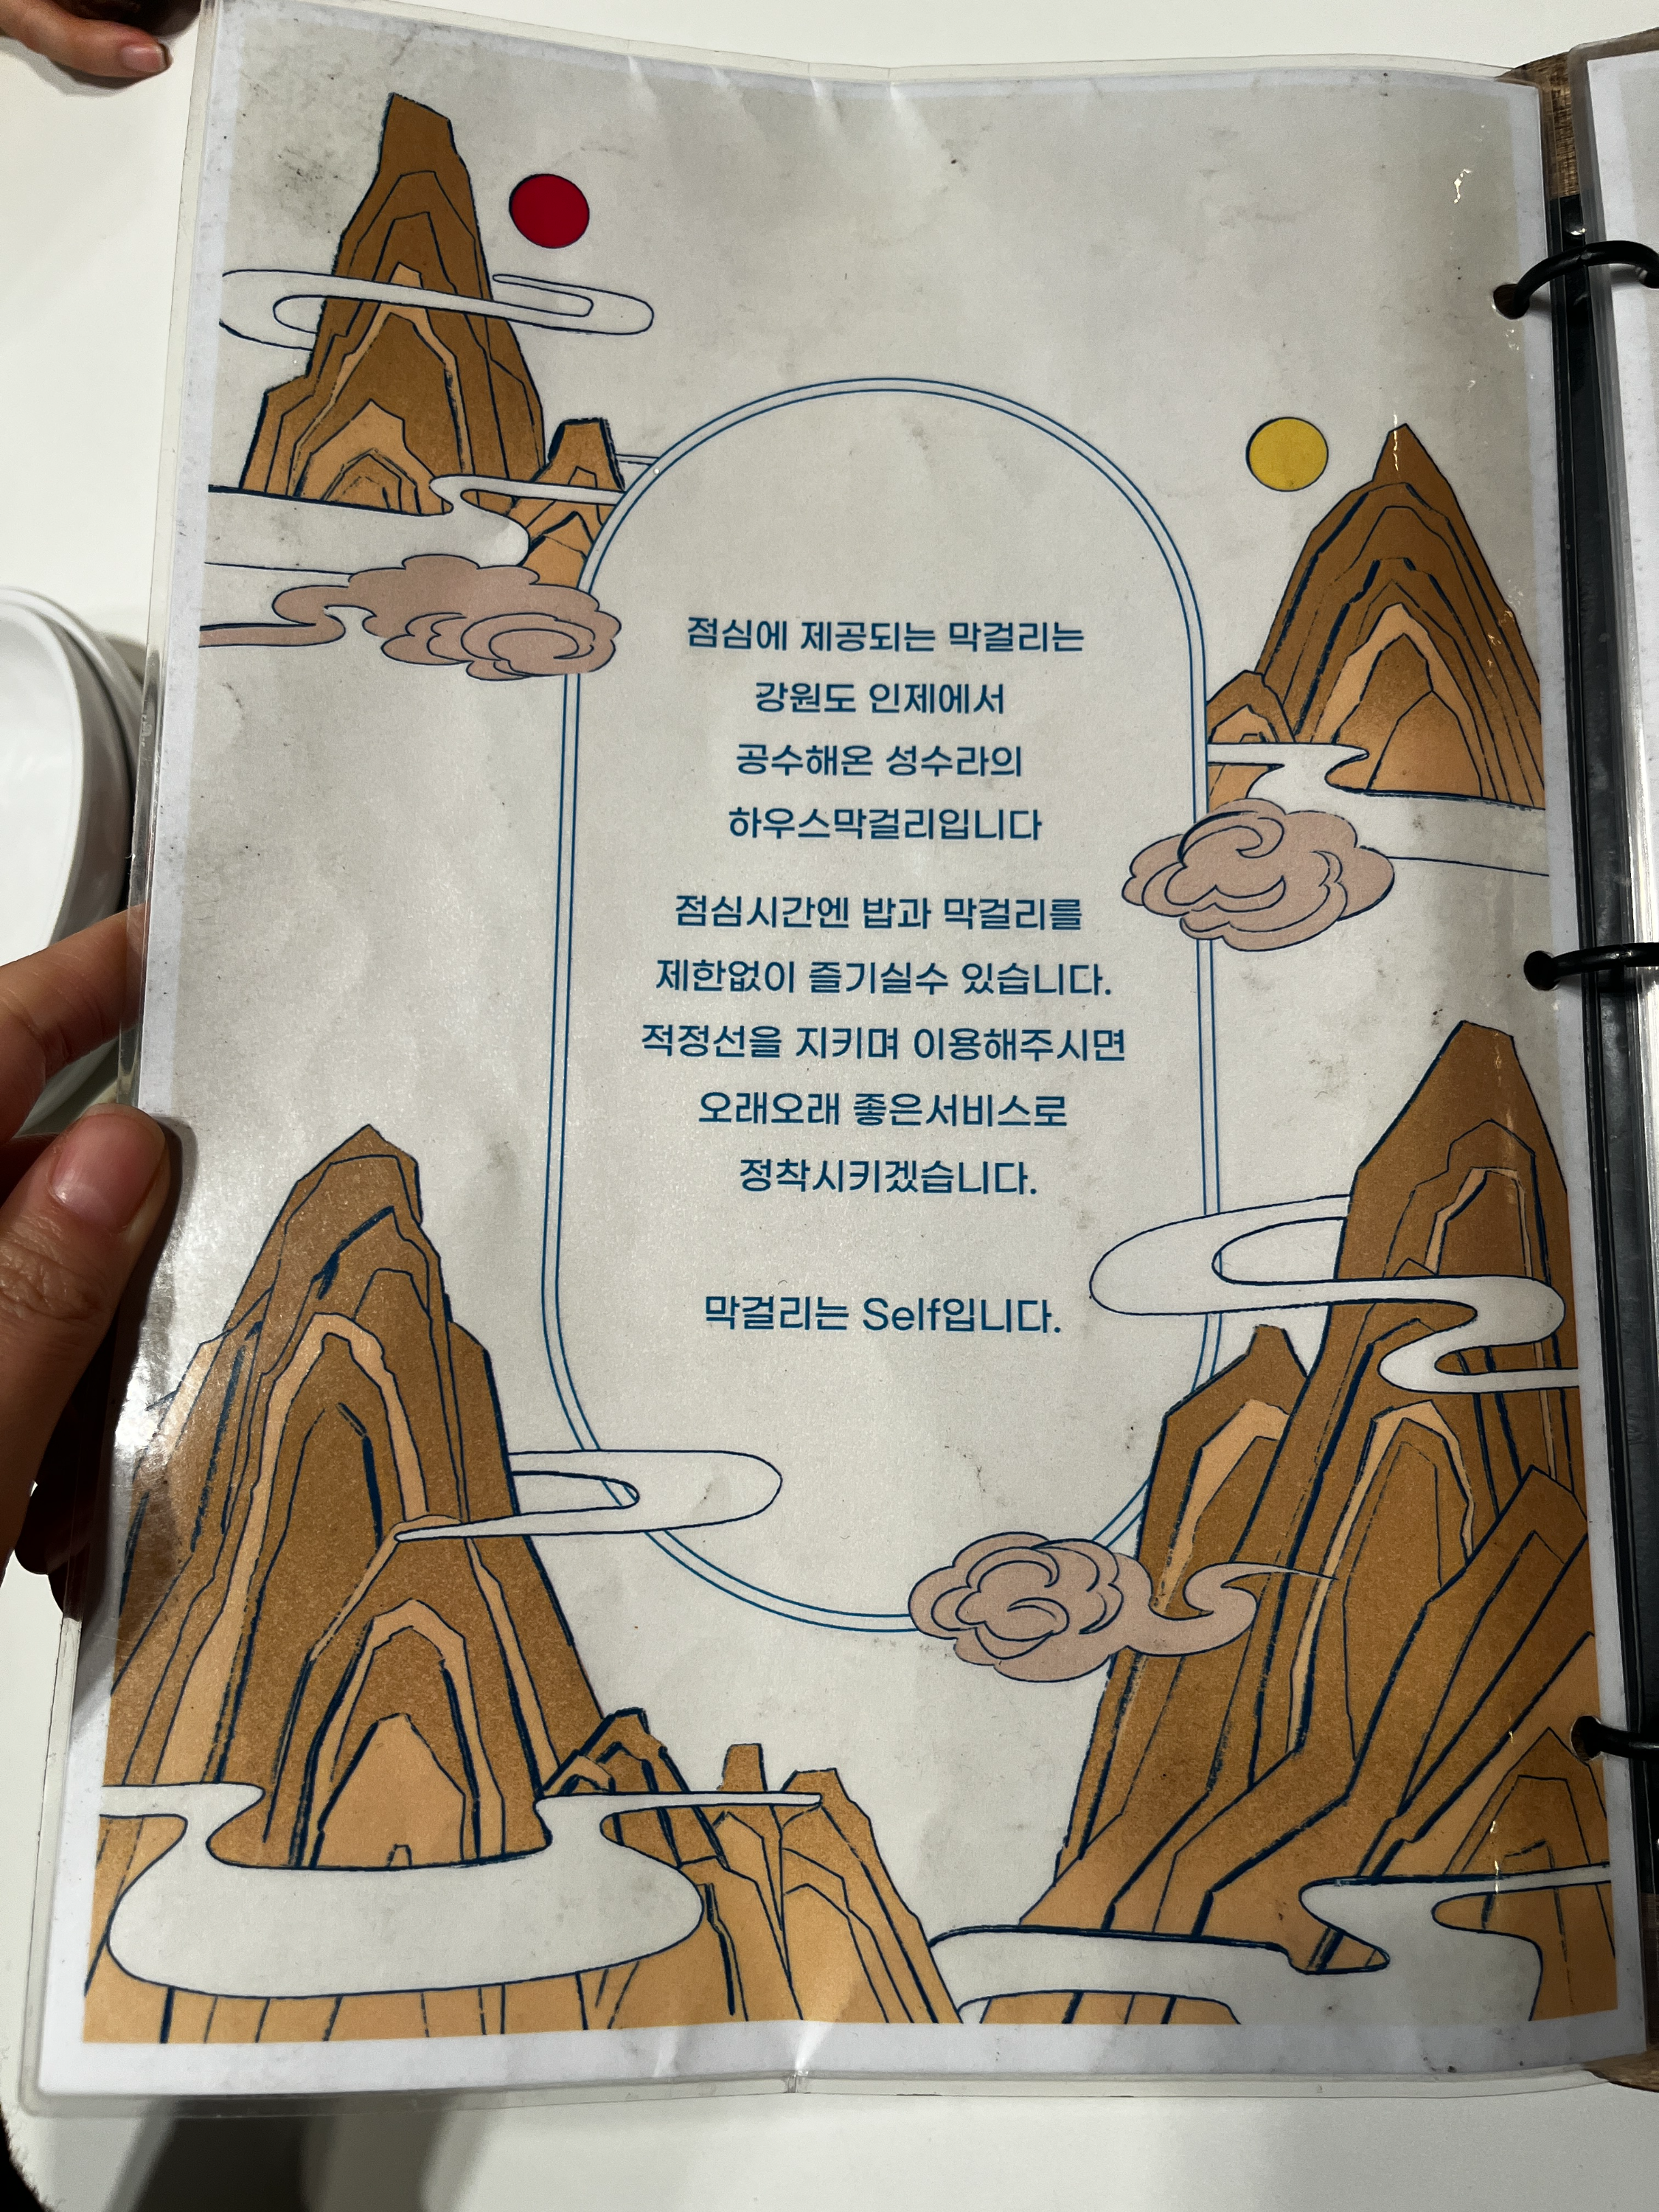 점심에 제공되는 막걸리는
강원도 인제에서
공수해온 성수라의
하우스막걸리입니다
점심시간엔 밥과 막걸리를
제한없이 즐기실수 있습니다.
적정선을 지키며 이용해주시면
오래오래 좋은서비스로
정착시키겠습니다.
막걸리는 Self입니다.